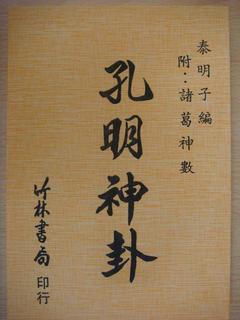 泰明子編
附：諸葛神數
孔明神卦
竹林書局印行